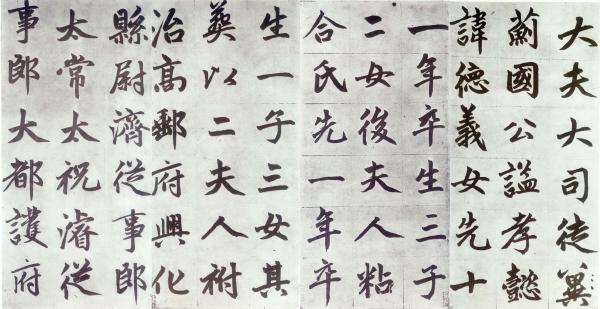 大夫大司徒冀
薊國公諡孝懿
諱德義女先十
一年卒生三子
二女後夫人粘
合氏先一年卒
生一子三女其
葬以二夫人祔
治高郵府興化
縣尉濟從事郎
太常太祝濬從
事郎大都護府